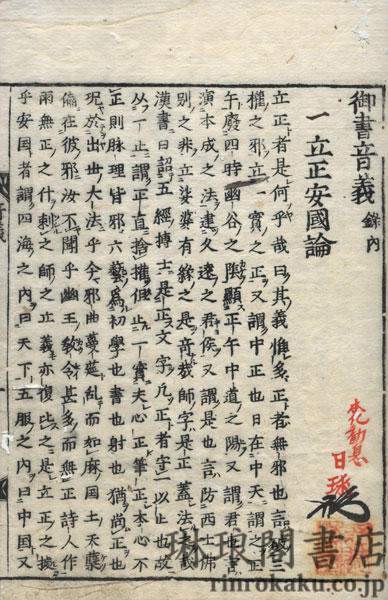 御書音義 錄內
一 立正安國論
立正者是何乎哉曰其義惟多正者無邪也言破三
權之邪立一實之正又謂中正也日在中天謂之正
午廢四時幽谷之陰顯正午中道之陽又謂君也言
演本成之法盡久遠之君候又謂是也言防西土佛
別之非立娑婆有緣之是奇哉師字是正
漢書曰詔五經博士是正文字凡正者守一以止也故
从一止謂正直捨權但止一實夫心正筆正本心不
正則脉理皆邪六藝為初學也書也射也猶尚正也
況於出世大法乎今天邪曲蔓莚亂而如麻國土夭孽
偏在彼邪汝不聞乎幽王教令甚多而無正詩人作
雨無正之什刺之師之立義亦復比之是立正之據
乎安国者謂四海之內曰天下五服之內曰中国又
日
琳琅閣書店
rinrokaku.co.jp